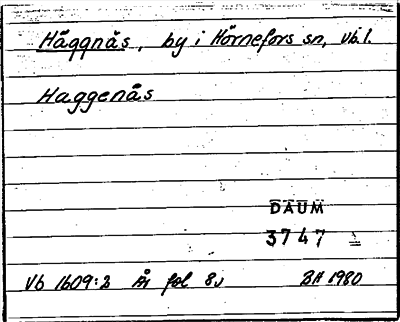 Häggnäs, by i Hörnefors sn, Vb.l.
Haggenäs
DAUM
3747
Vb 1609:2 Ål fol 8v BH 1980